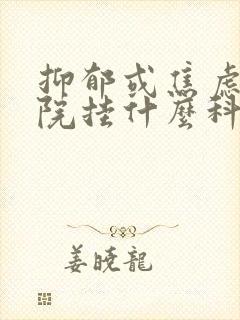 抑郁或焦虑
院挂什麼科
姜曉龍